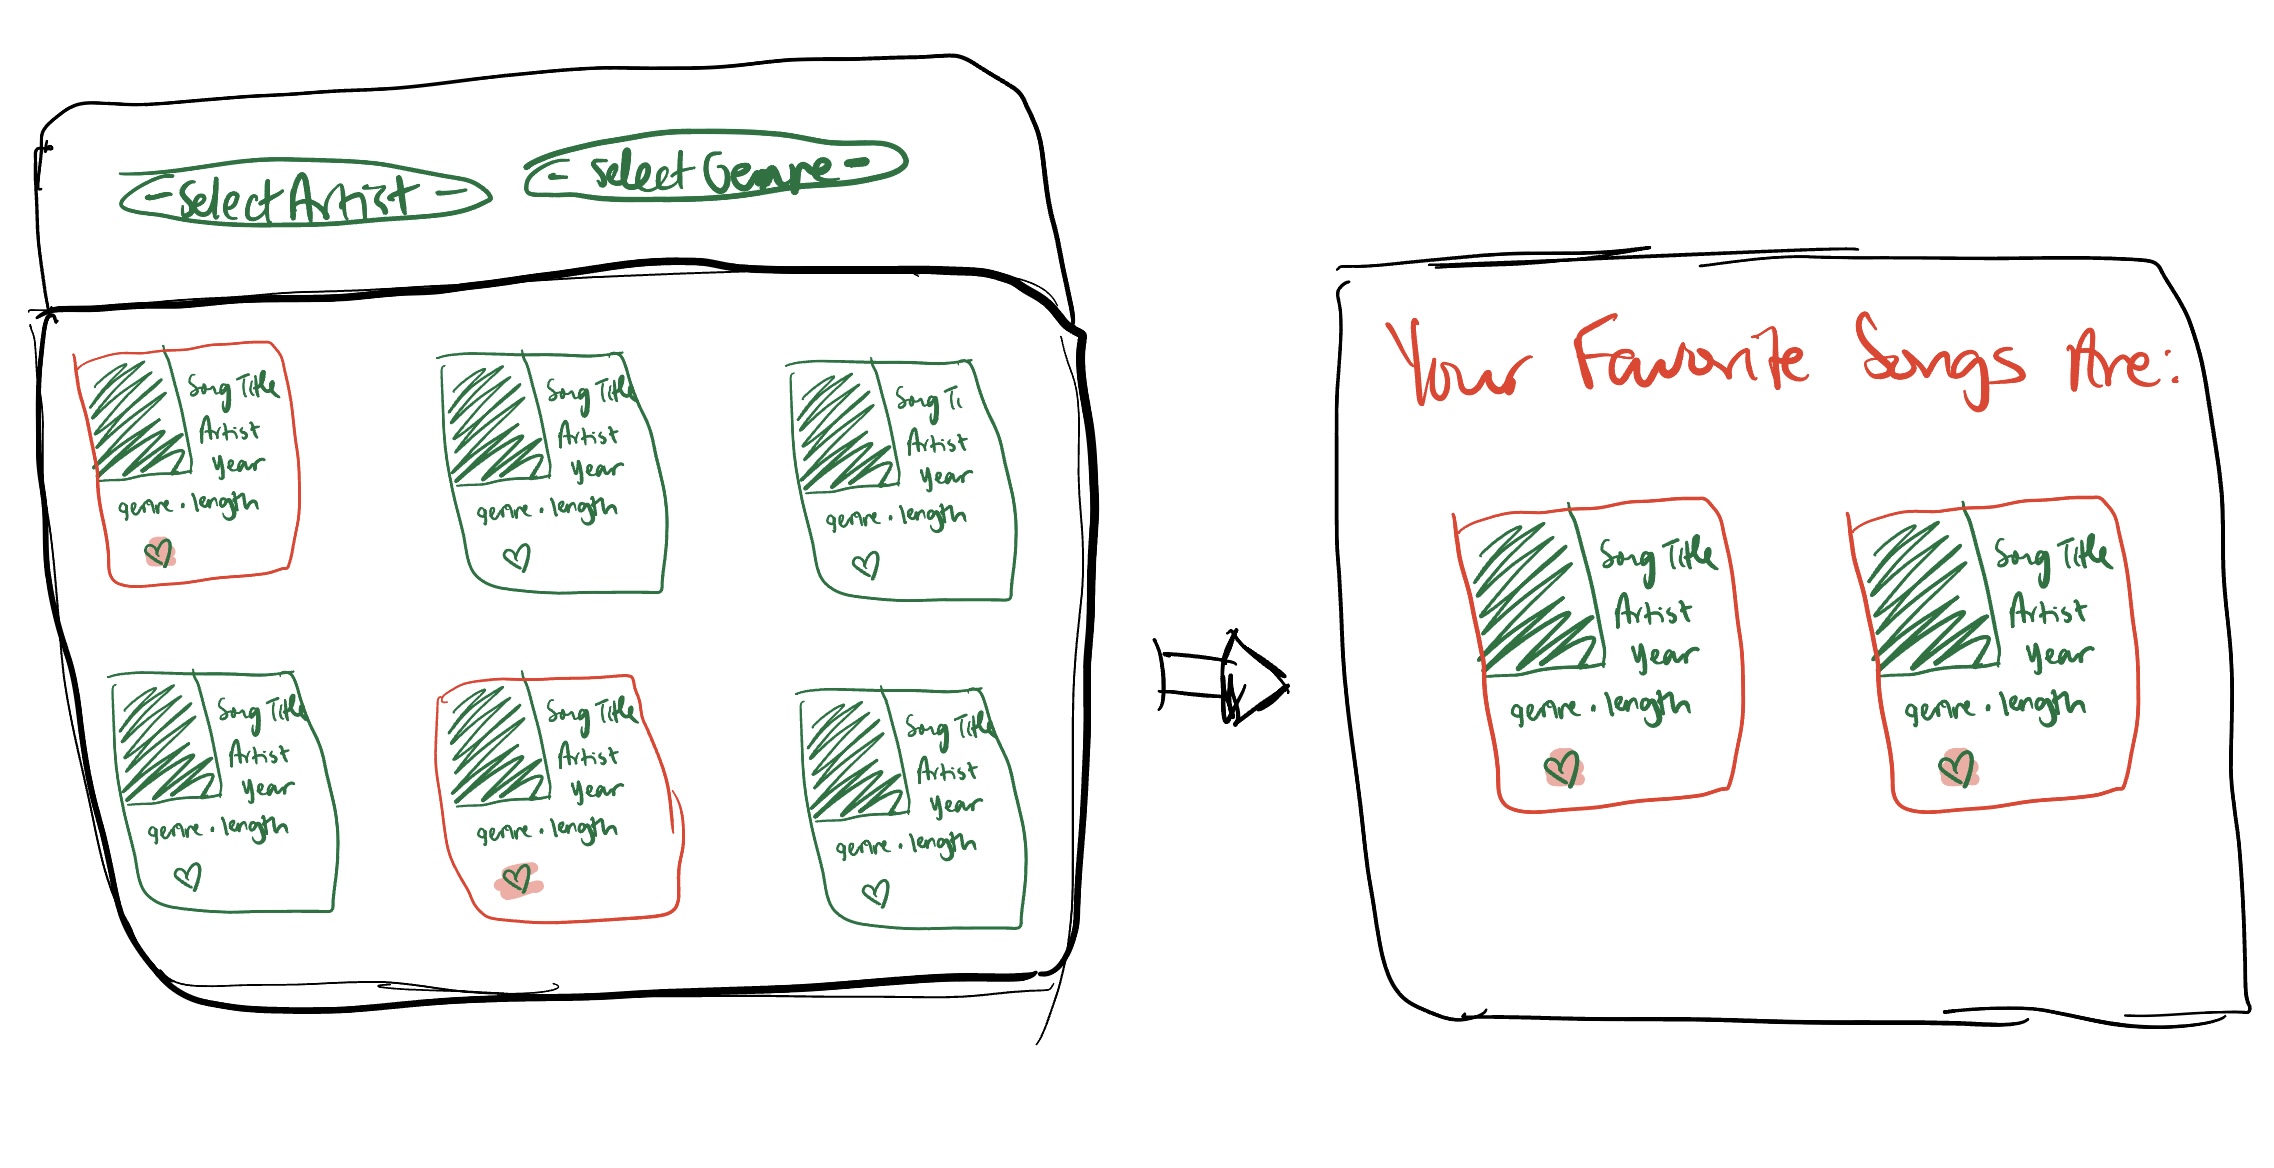 - Select Artist -
- Select Genre -
Song Title
Artist
Year
genre . length
Song Title
Artist
Year
genre . length
Song Ti
Artist
Year
genre . length
Song Title
Artist
Year
genre . length
Song Title
Artist
Year
genre . length
Song Title
Artist
Year
genre . length
Your Favorite Songs Are:
Song Title
Artist
Year
genre . length
Song Title
Artist
Year
genre . length